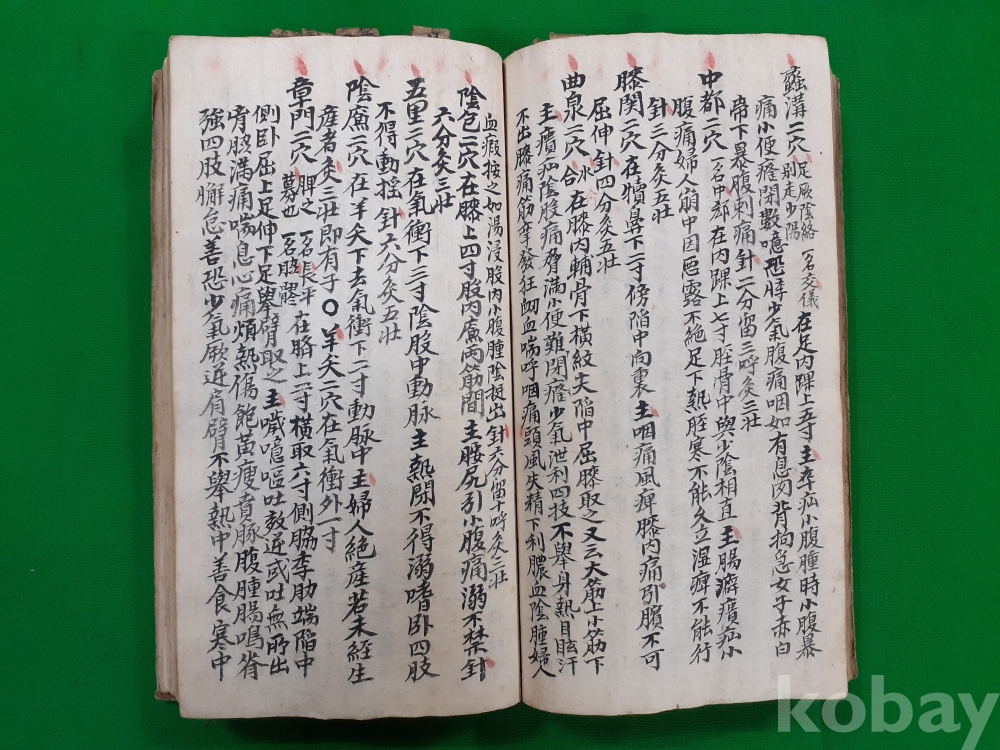 蠡溝二穴 足厥陰絡 別走少陽 一名交儀 在足內踝上五寸主卒疝小腹腫時小腹暴
痛小便癃閉數噫恐悸少氣腹痛咽如有息肉背拘急女子赤白
中都二穴 一名中郄在內踝上七寸脛骨中與少陰相直主腸澼㿉疝小
帝下暴腹刺痛針三分留三呼灸三壯
腹痛婦人崩中因惡露不絶足下熱脛寒不能久立湿痺不能行
針三分灸五壯
膝関二穴 在犢鼻下二寸傍陷中向裏主咽痛風痺膝內痛引臏不可
屈伸針四分灸五壯
曲泉二穴 合水 在膝內輔骨下橫紋尖陷中屈膝取之又云大筋上小筋下
主㿉疝陰股痛脅滿小便難閉癃少氣泄利四肢不舉身熱目眩汗
不出膝痛筋攣發狂衂血喘呼咽痛頭風失精下利膿血陰腫婦人
血瘕按之如湯浸股內小腹腫陰挺出針六分留十呼灸三壯
陰包二穴在膝上四寸股內廉兩筋間主腰尻引小腹痛溺不禁針
六分灸三壯
五里二穴在氣衝下三寸陰股中動脉主熱閉不得溺嗜卧四肢
不得動搖針六分灸五壯
陰廉二穴在羊矢下去氣衝下二寸動脉中主婦人絶産若未経生
産者灸三壯即有子〇羊矢二穴在氣衝外一寸
章門二穴 脾之募也 一名長平 一名脇髎 在臍上二寸橫取六寸側脇季肋端陷中
側卧屈上足伸下足擧臂取之主噦噫嘔吐欬逆或吐無所出
脅滿痛喘息心痛煩熱傷飽黃瘦賁豚腹腫腸鳴脊
強四肢懈怠善恐少氣厥逆肩臂不舉熱中善食寒中
kobay